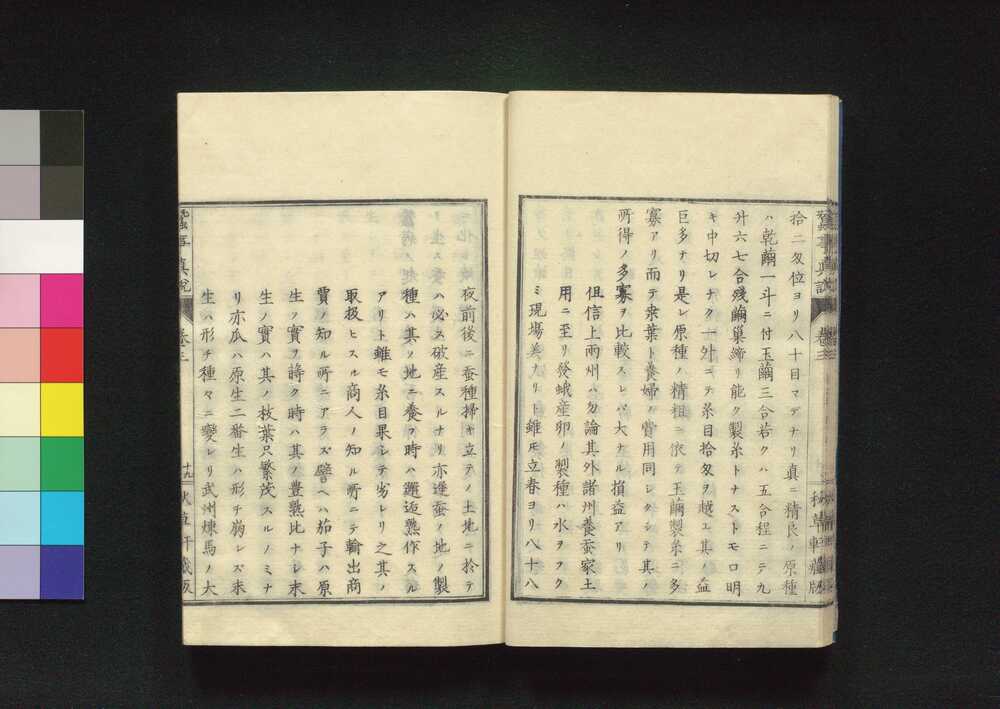 蠶事真説 卷三
拾二匁位ヨリ八十目マデナリ真ニ精良ノ原種
ハ乾繭一斗ニ付玉繭三合若クハ五合程ニテ九
升六七合殘繭巢締リ能ク製糸トナストモ口明
キ中切レナク一升ニテ糸目拾匁ヲ越エ其ノ益
巨多ナリ是レ原種ノ精粗ニ依テ玉繭製糸ニ多
寡アリ而テ桒葉ト養婦ノ費用同シクシテ其ノ
所得ノ多寡ヲ比較スレバ大ナル損益アリ
但信上兩州ハ勿論其外諸州養蚕家土
用ニ至リ發蛾産卵ノ製種ハ水ヲフク
ミ現場美ナリト雖モ立春ヨリ八十八
夜前後ニ蚕種掃キ立テノ土地ニ於テ
ハ必ス破産スルナリ亦違蚕ノ地ノ製
種ハ其ノ地ニ養フ時ハ邂逅熟作スル
アリト雖モ糸目果シテ劣レリ之其ノ
取扱ヒスル商人ノ知ル所ニテ輸出商
賈ノ知ル所ニアラズ譬ヘハ茄子ハ原
生ノ實ヲ蒔ク時ハ其ノ豊熟比ナシ末
生ノ實ハ其ノ枝葉只繁茂スルノミナ
リ亦瓜ハ原生二番生ハ形チ脇レズ末
生ハ形チ種々ニ變レリ武州煉馬ノ大
蠶事真説 卷三 十九